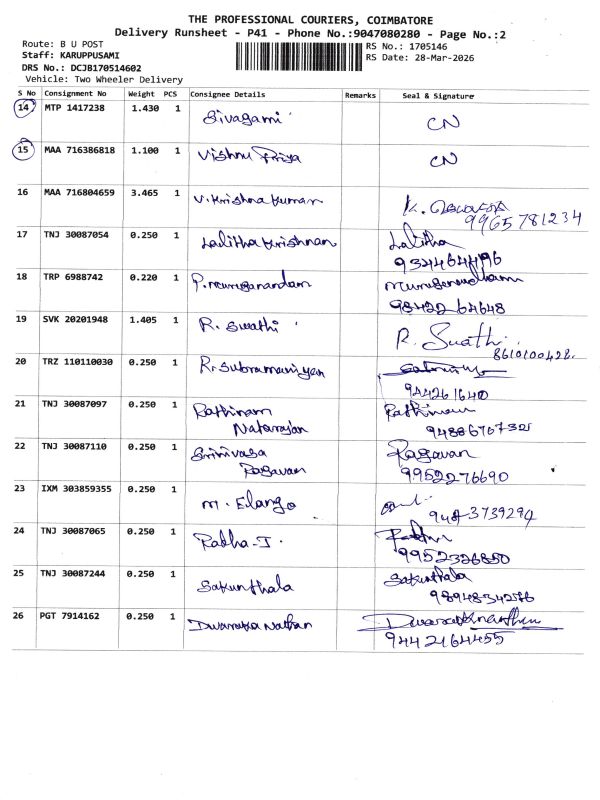 THE PROFESSIONAL COURIERS, COIMBATORE
Delivery Runsheet - P41 - Phone No.:9047080280 - Page No.:2
Route: B U POST
RS No.: 1705146
Staff: KARUPPUSAMI
RS Date: 28-Mar-2026
DRS No.: DCJB170514602
Vehicle: Two Wheeler Delivery
S No Consignment No Weight PCS Consignee Details Remarks Seal & Signature
14 MTP 1417238 1.430 1 Sivagami CN
15 MAA 716386818 1.100 1 Vishnu Priya CN
16 MAA 716804659 3.465 1 V. Krishna Kumar K.
9965781234
17 TNJ 30087054 0.250 1 Lalitha Krishnan Lalitha
18 TRP 6988742 0.220 1 P. Muruganandam Muruganandham
98422 64648
19 SVK 20201948 1.405 1 R. Swathi R. Swathi.
8610100428.
20 TRZ 110110030 0.250 1 R. Subramaniyan
944261640
21 TNJ 30087097 0.250 1 Rathinam Rathinam
Natarajan
22 TNJ 30087110 0.250 1 Srinivasa Ragavan
Ragavan 9952276690
23 IXM 303859355 0.250 1 M. Elango
24 TNJ 30087065 0.250 1 Rabha-I.
9952326850
25 TNJ 30087244 0.250 1 Sakunthala Sakunthala
26 PGT 7914162 0.250 1 Dwaraka Nathan Dwarakanathan
9442164455